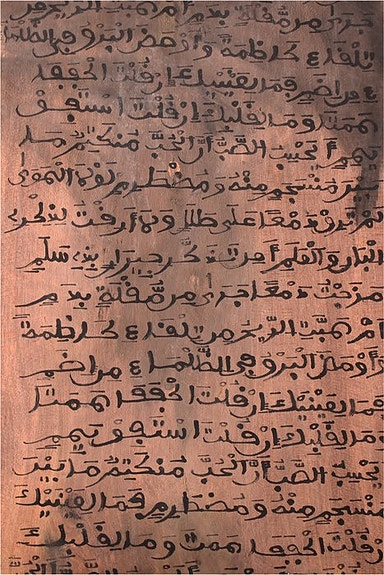 جرى من مقلة بدم أم هبت الريح من
تلقاء كاظمة وأومض البرق في الظلما
ء من اضم فما لعينيك إن قلت اكففا
همتا وما لقلبك إن قلت استفق
يهم أيحسب الصب أن الحب منكتم ما
بين منسجم منه ومضطرم لولا الهوى
لم ترق دمعا على طلل ولا أرقت لذكر
البان والعلم أمن تذكر جيران بذي سلم
مزجت دمعا جرى من مقلة بدم
أم هبت الريح من تلقاء كاظمة
وأومض البرق في الظلماء من اضم
فما لعينيك إن قلت اكففا همتا
وما لقلبك إن قلت استفق يهم
أيحسب الصب أن الحب منكتم ما بين
منسجم منه ومضطرم فما لعينيك
إن قلت اكففا همتا وما لقلبك